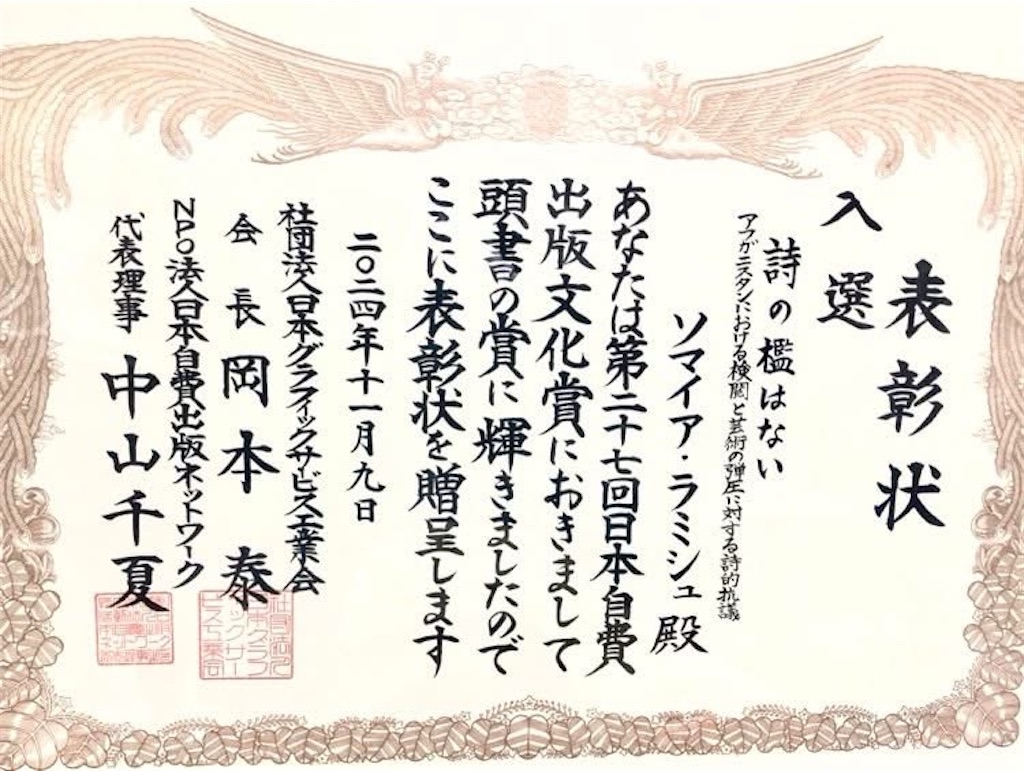 表彰状
入選
詩の檻はない
アフガニスタンにおける検閲と芸術の弾圧に対する詩的抗議
ソマイア・ラミシュ殿
あなたは第二十七回日本自費
出版文化賞におきまして
頭書の賞に輝きましたので
ここに表彰状を贈呈します
二〇二四年十一月九日
社団法人日本グラフィックサービス工業会
会長 岡本 泰
NPO法人日本自費出版ネットワーク
代表理事 中山千夏